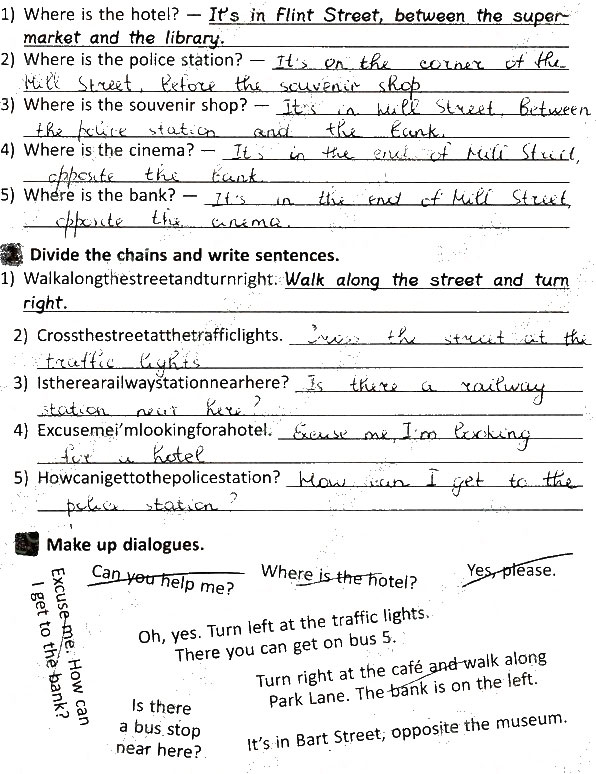 1) Where is the hotel? — It's in Flint Street, between the super-
market and the library.
2) Where is the police station? — It's on the corner of the
Mill Street, before the souvenir shop
3) Where is the souvenir shop? — It's in Mill Street, Between
the police station and the bank.
4) Where is the cinema? — It's in the end of Mill Street,
opposite the bank
5) Where is the bank? — It's in the end of Mill Street,
opposite the cinema.
2 Divide the chains and write sentences.
1) Walkalongthestreetandturnright. Walk along the street and turn
right.
2) Crossthestreetatthetrafficlights. Cross the street at the
traffic lights
3) Istherearailwaystationnearhere? Is there a railway
station near here?
4) Excusemei'mlookingforahotel. Excuse me, I'm looking
for a hotel
5) Howcanigettothepolicestation? How can I get to the
police station?
Make up dialogues.
Can you help me?
Where is the hotel?
Yes, please.
Excuse me. How can
I get to the bank?
Oh, yes. Turn left at the traffic lights.
There you can get on bus 5.
Turn right at the café and walk along
Park Lane. The bank is on the left.
Is there
a bus stop
near here?
It's in Bart Street, opposite the museum.